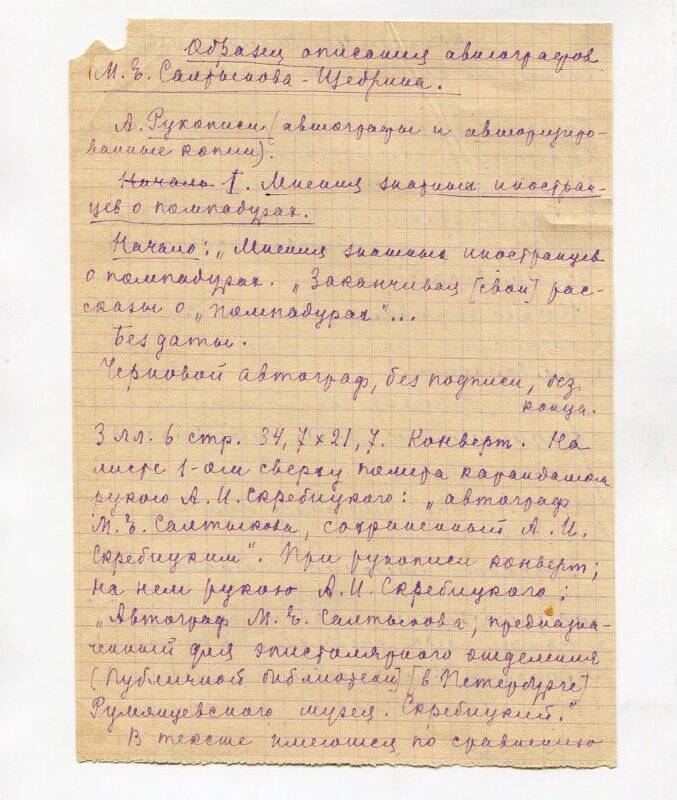 Образец описания автографов
М. Е. Салтыкова-Щедрина.
А. Рукописи (автографы и авторизиро-
ванные копии).
Начало I. Мнения знатных иностран-
цев о помпадурах.
Начало: „Мнения знатных иностранцев
о помпадурах. „Заканчивая [свои] рас-
сказы о „помпадурах"...
Без даты.
Черновой автограф, без подписи, без
конца.
3 лл. 6 стр. 34,7 х 21,7. Конверт. На
листе 1-ом сверху помета карандашом
рукою А. И. Скребицкого: „автограф
М. Е. Салтыкова, сохраненный А. И.
Скребицким". При рукописи конверт;
на нем рукою А. И. Скребицкого:
„Автограф М. Е. Салтыкова, предназна-
ченный для эпистолярного отделения
(Публичной библиотеки] [в Петербурге]
Румянцевского музея. Скребицкий."
В тексте имеются, по сравнению